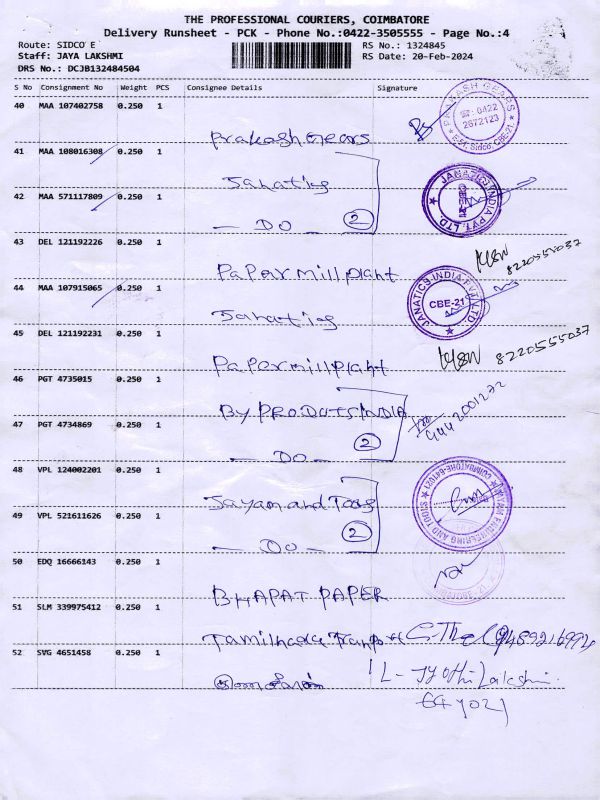 THE PROFESSIONAL COURIERS, COIMBATORE
Delivery Runsheet - PCK - Phone No.:0422-3505555 - Page No.:4
Route: SIDCO E RS No.: 1324845
Staff: JAYA LAKSHMI RS Date: 20-Feb-2024
DRS No.: DCJB132484504
S No Consignment No Weight PCS Consignee Details Signature
40 MAA 107402758 0.250 1
Prakash Gears
PRAKASH GEARS 0422 2672123 Sidco, CBE-21
41 MAA 108016308 0.250 1
Janatics
JANATICS INDIA PVT. LTD.
42 MAA 571117809 0.250 1
— DO — 2
43 DEL 121192226 0.250 1
Paper mill plant 8220555037
44 MAA 107915065 0.250 1
Janatics
JANATICS INDIA PVT. LTD. CBE-21
45 DEL 121192231 0.250 1
Paper mill plant 8220555037
46 PGT 4735015 0.250 1
BY PRODUTS INDIA
9442001272
47 PGT 4734869 0.250 1
— DO — 2
48 VPL 124002201 0.250 1
Sayam and Toos
COIMBATORE-641021
49 VPL 521611626 0.250 1
— DO — 2
50 EDQ 16666143 0.250 1
BHAPAT PAPER
51 SLM 339975412 0.250 1
52 SVG 4651458 0.250 1
L - Jyothi Lakshmi